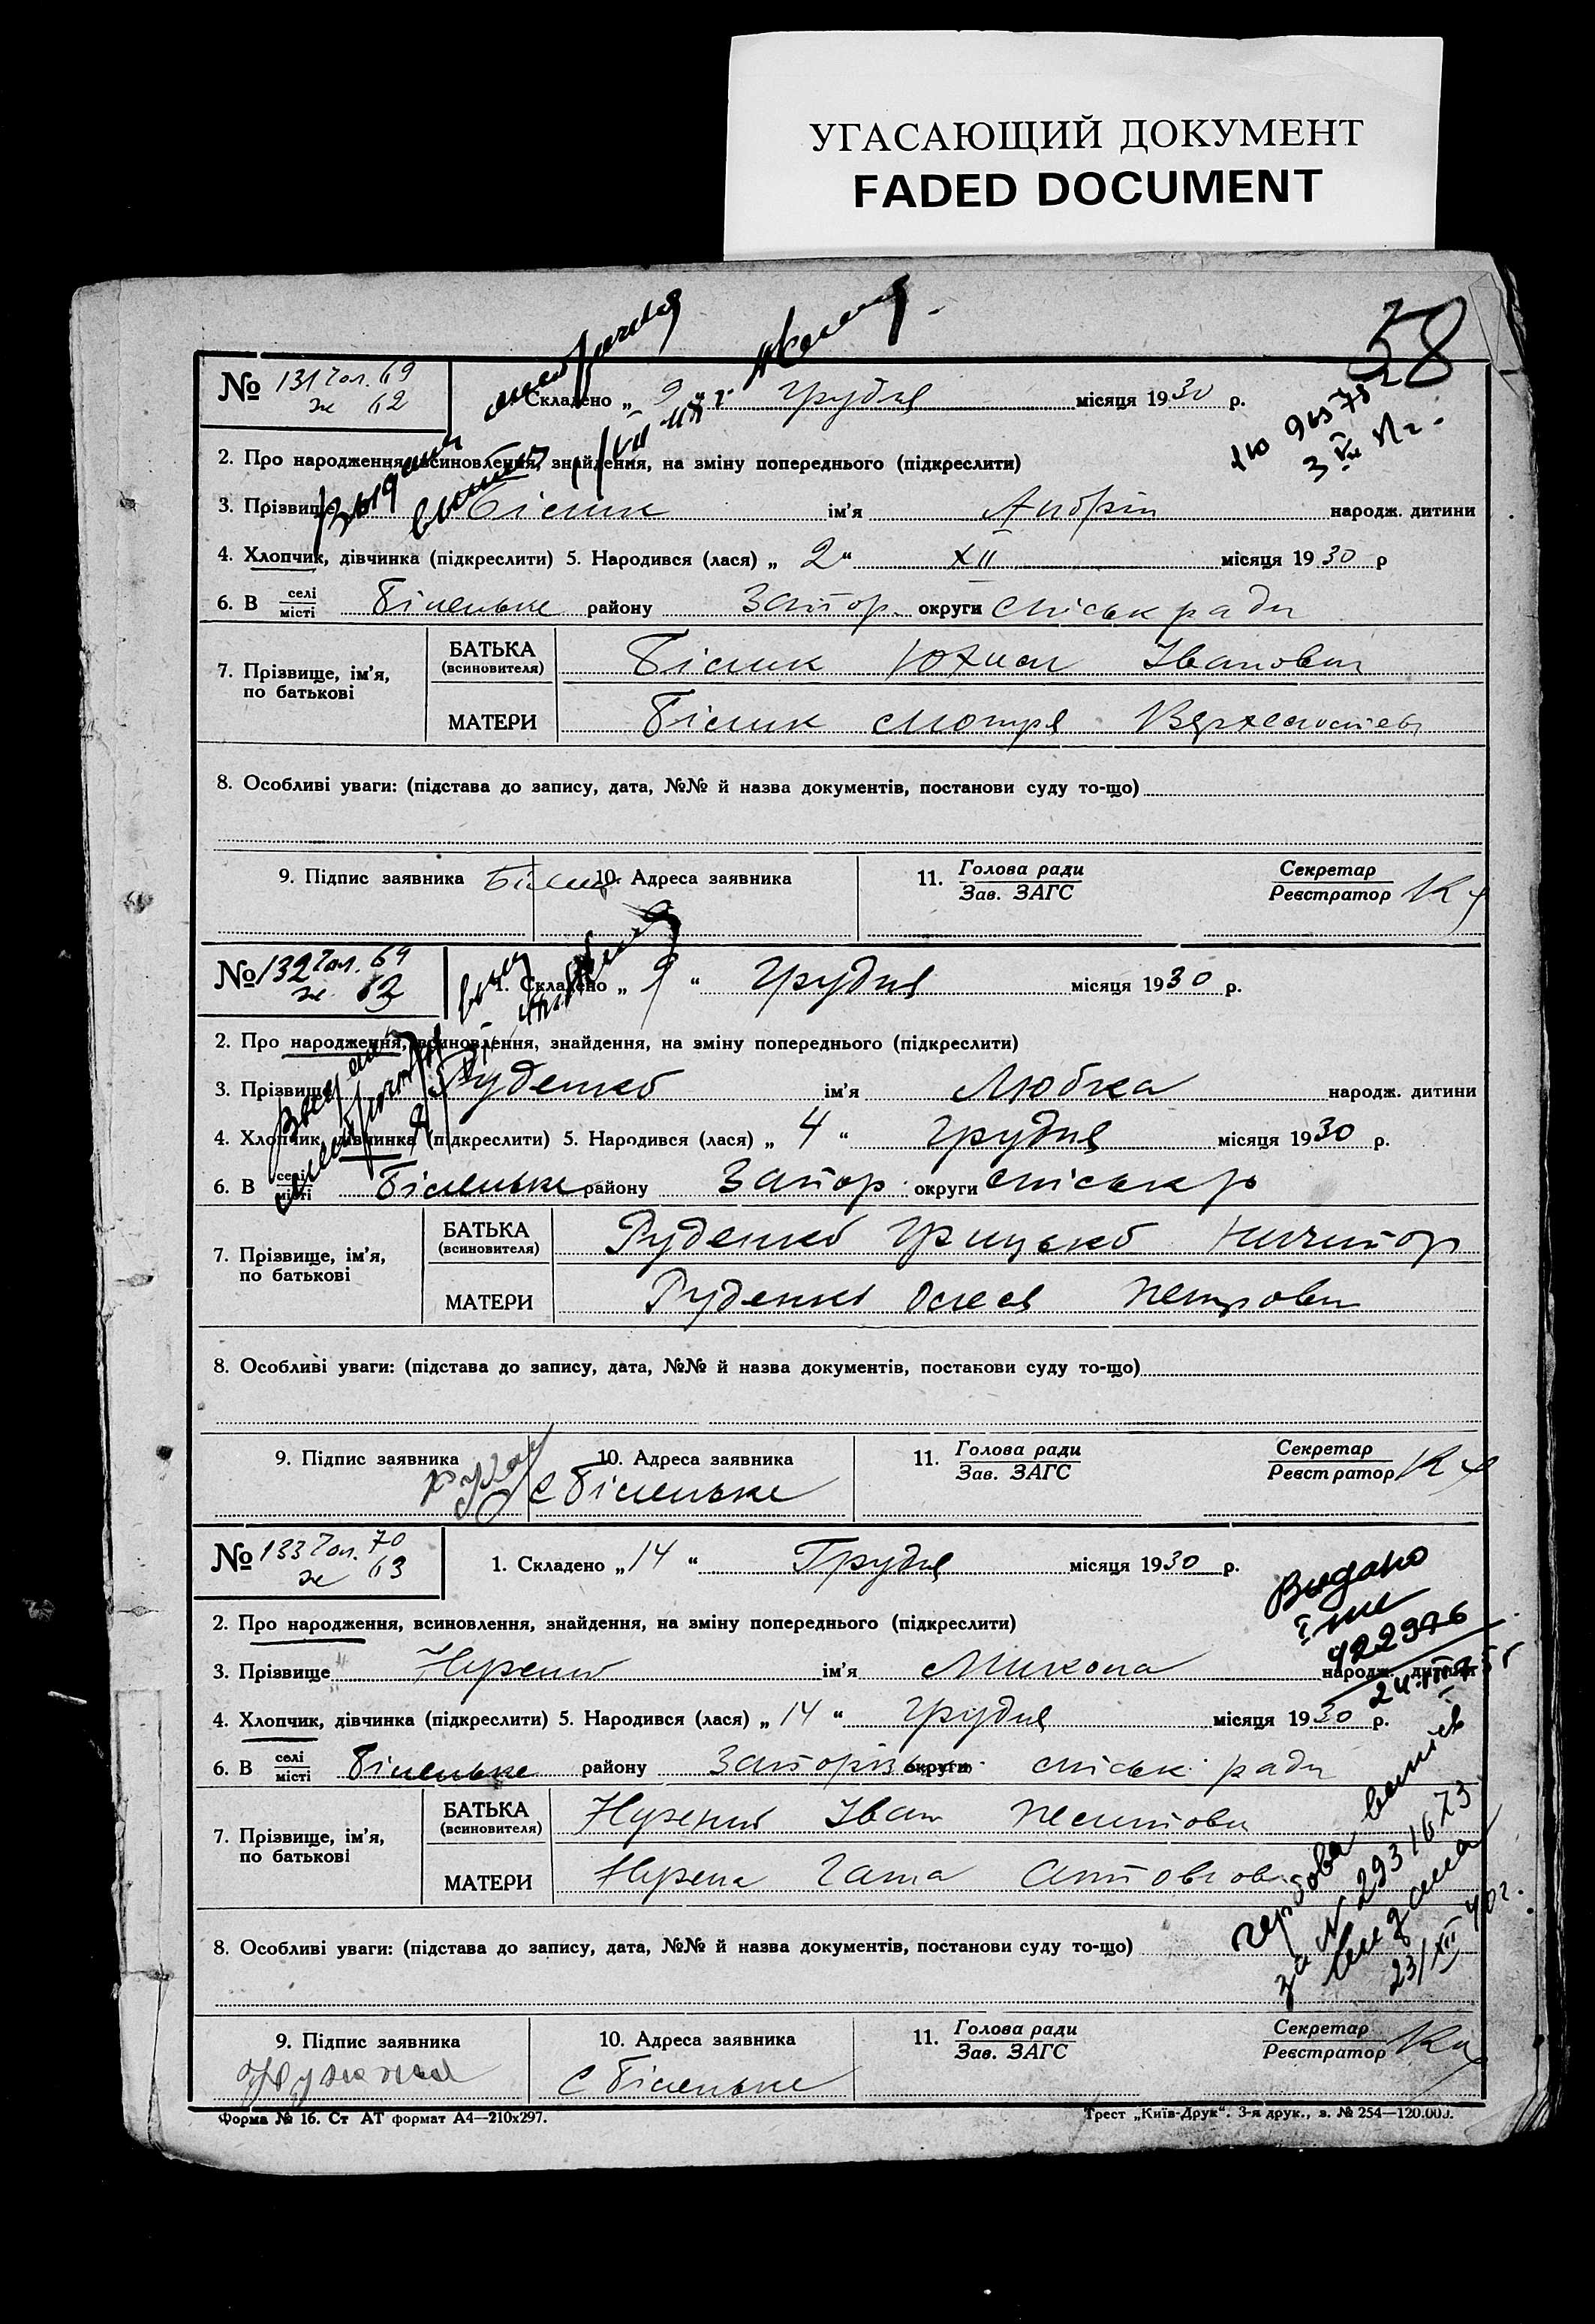 УГАСАЮЩИЙ ДОКУМЕНТ
FADED DOCUMENT
58
№ 131 Чол. 69
ж 62
Складено „ 9 “ Грудня місяця 1930 р.
2. Про народження, всиновлення, знайдення, на зміну попереднього (підкреслити)
3. Прізвище Білик ім'я Андрій народж. дитини
4. Хлопчик, дівчинка (підкреслити) 5. Народився (лася) „ 2 “ XII місяця 1930 р
6. В селі місті Біленьке району Запор. округи міськ ради
7. Прізвище, ім'я, по батькові
БАТЬКА (всиновителя) Білик Юхим Іванович
МАТЕРИ Білик Мотря
8. Особливі уваги: (підстава до запису, дата, №№ й назва документів, постанови суду то-що)
9. Підпис заявника Білик 10. Адреса заявника 11. Голова ради Зав. ЗАГС Секретар Реєстратор
№ 132 Чол. 69
ж. 63
1. Складено „ 9 “ Грудня місяця 1930 р.
2. Про народження, всиновлення, знайдення, на зміну попереднього (підкреслити)
3. Прізвище Руденко ім'я Любка народж. дитини
4. Хлопчик, дівчинка (підкреслити) 5. Народився (лася) „ 4 “ Грудня місяця 1930 р.
6. В селі місті Біленьке району Запор. округи міськ р
7. Прізвище, ім'я, по батькові
БАТЬКА (всиновителя) Руденко Грицько Ничипор
МАТЕРИ Руденко Петрови
8. Особливі уваги: (підстава до запису, дата, №№ й назва документів, постанови суду то-що)
9. Підпис заявника 10. Адреса заявника 11. Голова ради Зав. ЗАГС Секретар Реєстратор
с Біленьке
№ 133 Чол. 70
ж 63
1. Складено „ 14 “ Грудня місяця 1930 р.
Видано
2. Про народження, всиновлення, знайдення, на зміну попереднього (підкреслити)
3. Прізвище ім'я Микола народж. дитини
4. Хлопчик, дівчинка (підкреслити) 5. Народився (лася) „ 14 “ Грудня місяця 1930 р.
6. В селі місті Біленьке району Запорізьк округи міськ ради
7. Прізвище, ім'я, по батькові
БАТЬКА (всиновителя) Іван
МАТЕРИ
8. Особливі уваги: (підстава до запису, дата, №№ й назва документів, постанови суду то-що)
за № 2931673
23/XII 40г.
9. Підпис заявника 10. Адреса заявника 11. Голова ради Зав. ЗАГС Секретар Реєстратор
с Біленьке
Форма № 16. Ст АТ формат А4—210х297.
Трест „Київ-Друк“. 3-я друк., з. № 254—120.000.